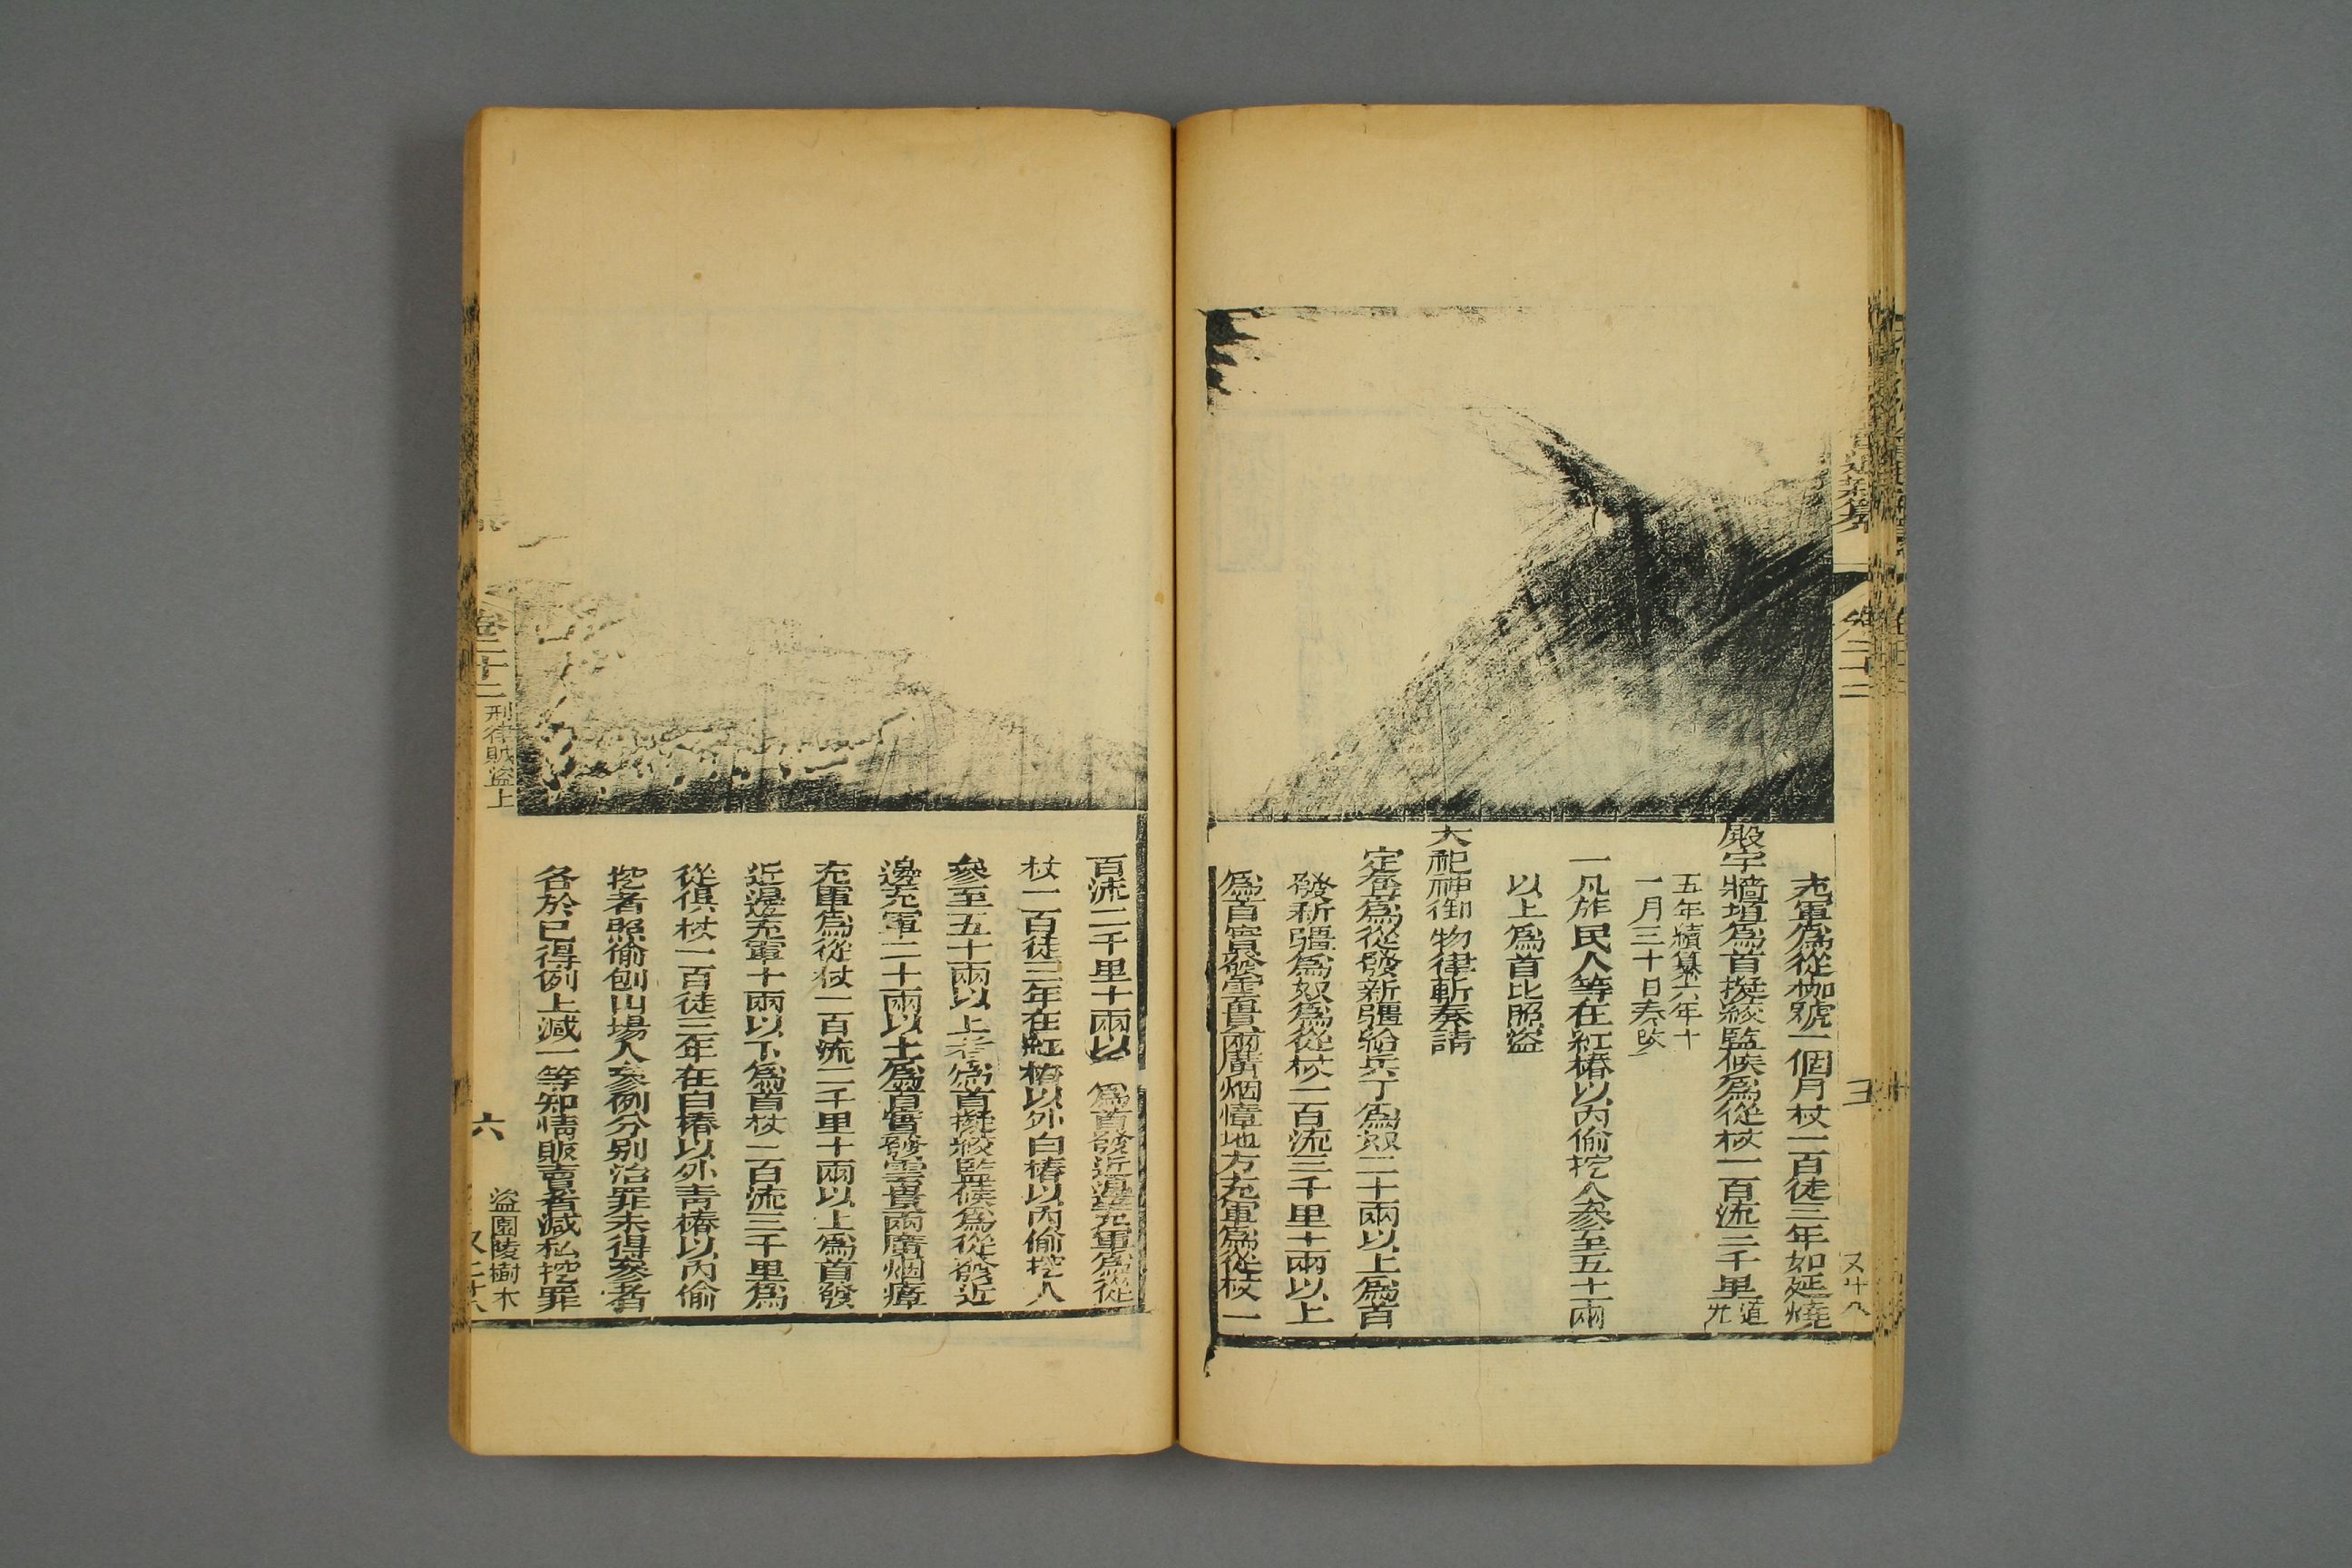 充軍爲從枷號一個月杖一百徒三年如延燒
殿宇牆垣爲首擬絞監候爲從杖一百流三千里道光
五年續纂六年十
一月三十日奏改
一凡旂民人等在紅樁以內偷挖人參至五十兩
以上爲首比照盜
大祀神御物律斬奏請
定奪爲從發新疆給兵丁爲奴二十兩以上爲首
發新疆爲奴爲從杖一百流三千里十兩以上
爲首實發雲貴兩廣烟瘴地方充軍爲從杖一
卷二十二
三
又廿八
百流二千里十兩以 爲首發近邊充軍爲從
杖一百徒三年在紅樁以外白樁以內偷挖人
參至五十兩以上者爲首擬絞監候爲從發近
邊充軍二十兩以上爲首實發雲貴兩廣烟瘴
充軍爲從杖一百流二千里十兩以上爲首發
近邊充軍十兩以下爲首杖一百流三千里爲
從俱杖一百徒三年在白樁以外青樁以內偷
挖者照偷刨山場人參例分别治罪未得參者
各於已得例上減一等知情販賣者減私挖罪
卷二十二
刑律賊盜上
六
盜園陵樹木
又二十八